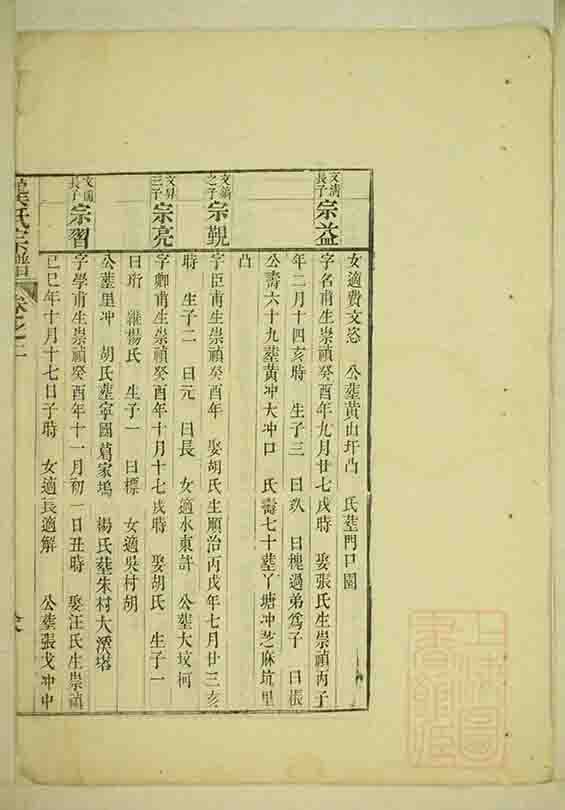 女適費文忞 公塟黃山圩凸 氏塟門口園
文淸長子 宗益 字名甫生崇禎癸酉年九月廿七戌時 娶張氏生崇禎丙子
年二月十四亥時 生子三 曰玖 曰槐過弟爲子 曰棖
公壽六十九塟黃冲大冲口 氏壽七十塟丫塘冲芝麻坑里
凸
之子 宗覲 字臣甫生崇禎癸酉年 娶胡氏生順治丙戌年七月廿三亥
時 生子二 曰元 曰長 女適水東許 公塟大坟柯
文昇三子 宗亮 字卿甫生崇禎癸酉年十月十七戌時 娶胡氏 生子一
曰珩 繼楊氏 生子一 曰標 女適吳村胡
公塟里冲 胡氏塟寧國葛家塢 楊氏塟朱村大溪塔
長子 宗習 字學甫生崇禎癸酉年十一月初一日丑時 娶汪氏生崇禎
己巳年十月十七日子時 女適長適解 公塟張戈冲中
氏宗譜 卷之二
上 圖書館藏